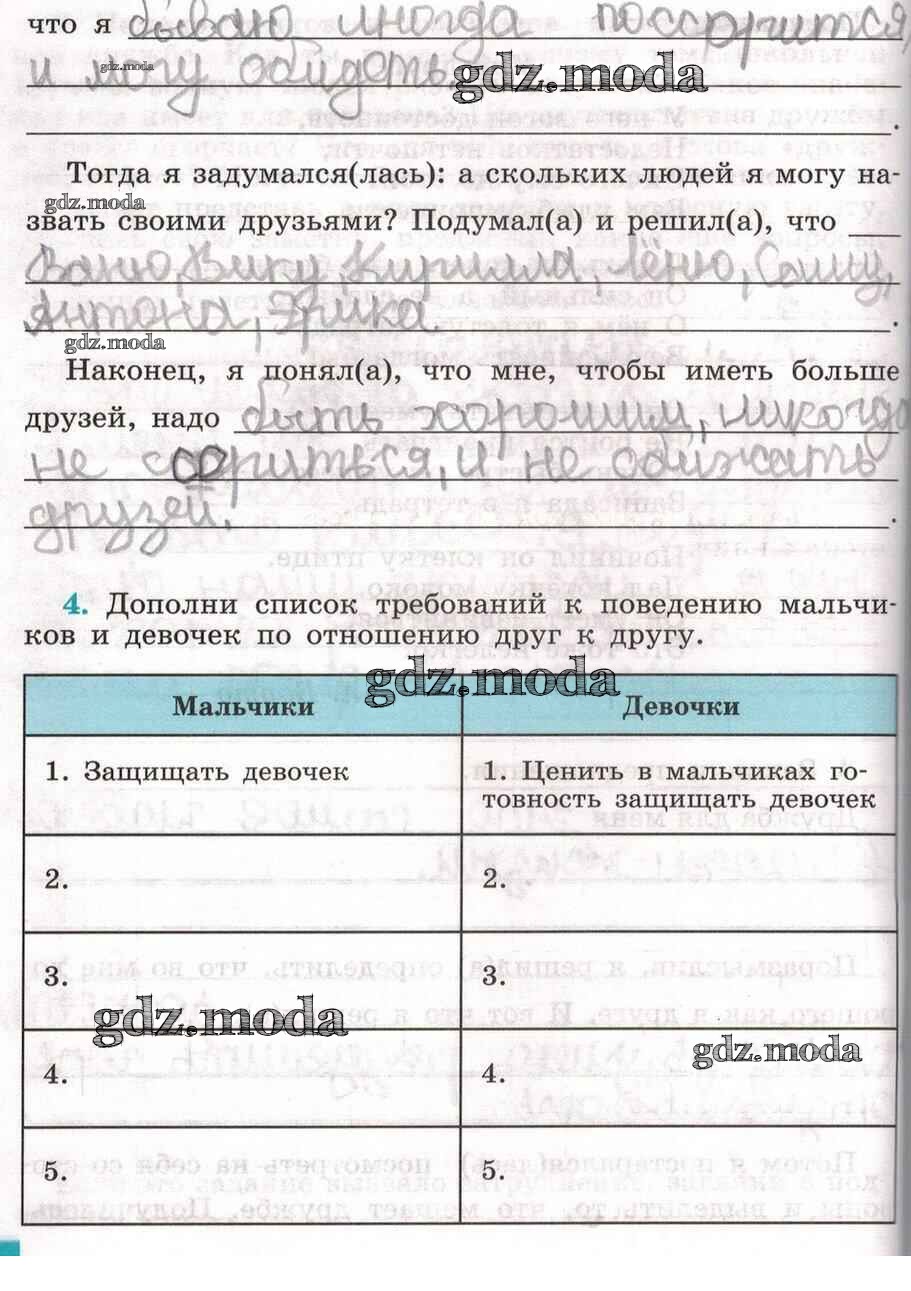 что я бываю иногда поссорится
и могу обидеть.
gdz.moda
gdz.moda
.
Тогда я задумался(лась): а скольких людей я могу на-
gdz.moda
звать своими друзьями? Подумал(а) и решил(а), что
Ваню, Вику, Кирилла, Лёню, Сашу,
Антона, Эрика.
gdz.moda
Наконец, я понял(а), что мне, чтобы иметь больше
друзей, надо быть хорошим, никогда
не ссориться, и не обижать
друзей.
4. Дополни список требований к поведению мальчи-
ков и девочек по отношению друг к другу.
gdz.moda
Мальчики Девочки
1. Защищать девочек 1. Ценить в мальчиках го-
товность защищать девочек
2. 2.
3. 3.
gdz.moda
gdz.moda
4. 4.
5. 5.